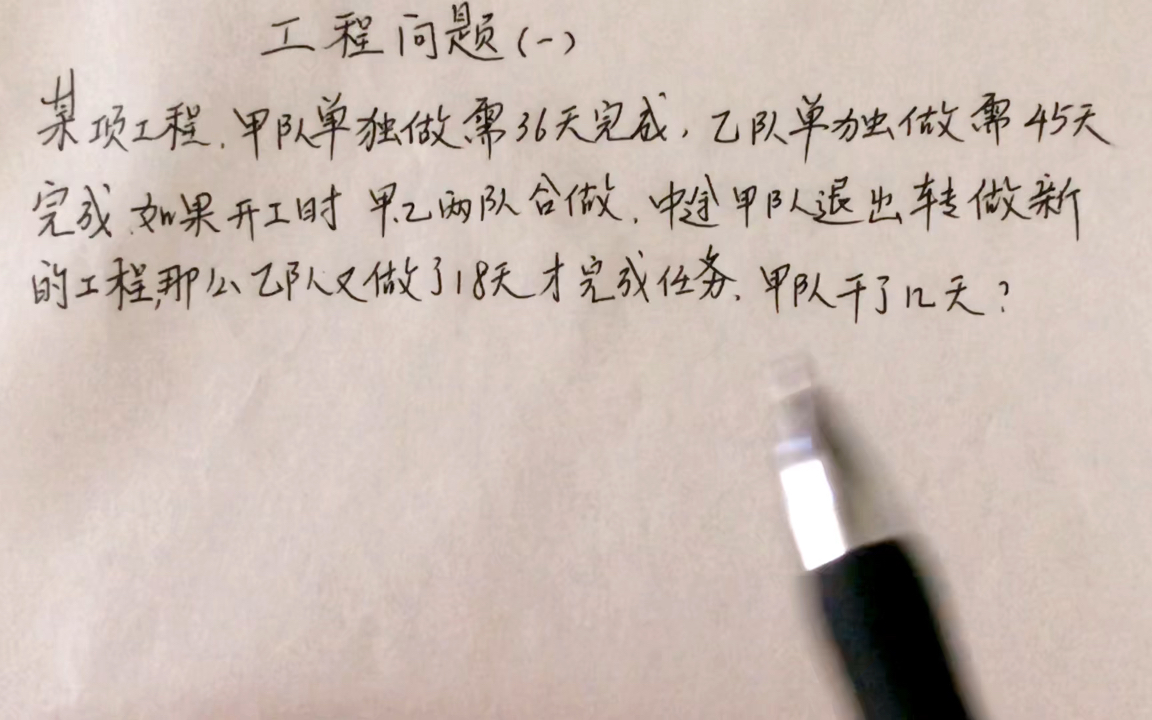 工程问题(一)
某项工程,甲队单独做需36天完成,乙队单独做需45天
完成.如果开工时甲.乙两队合做,中途甲队退出转做新
的工程,那么乙队又做了18天才完成任务.甲队干了几天?